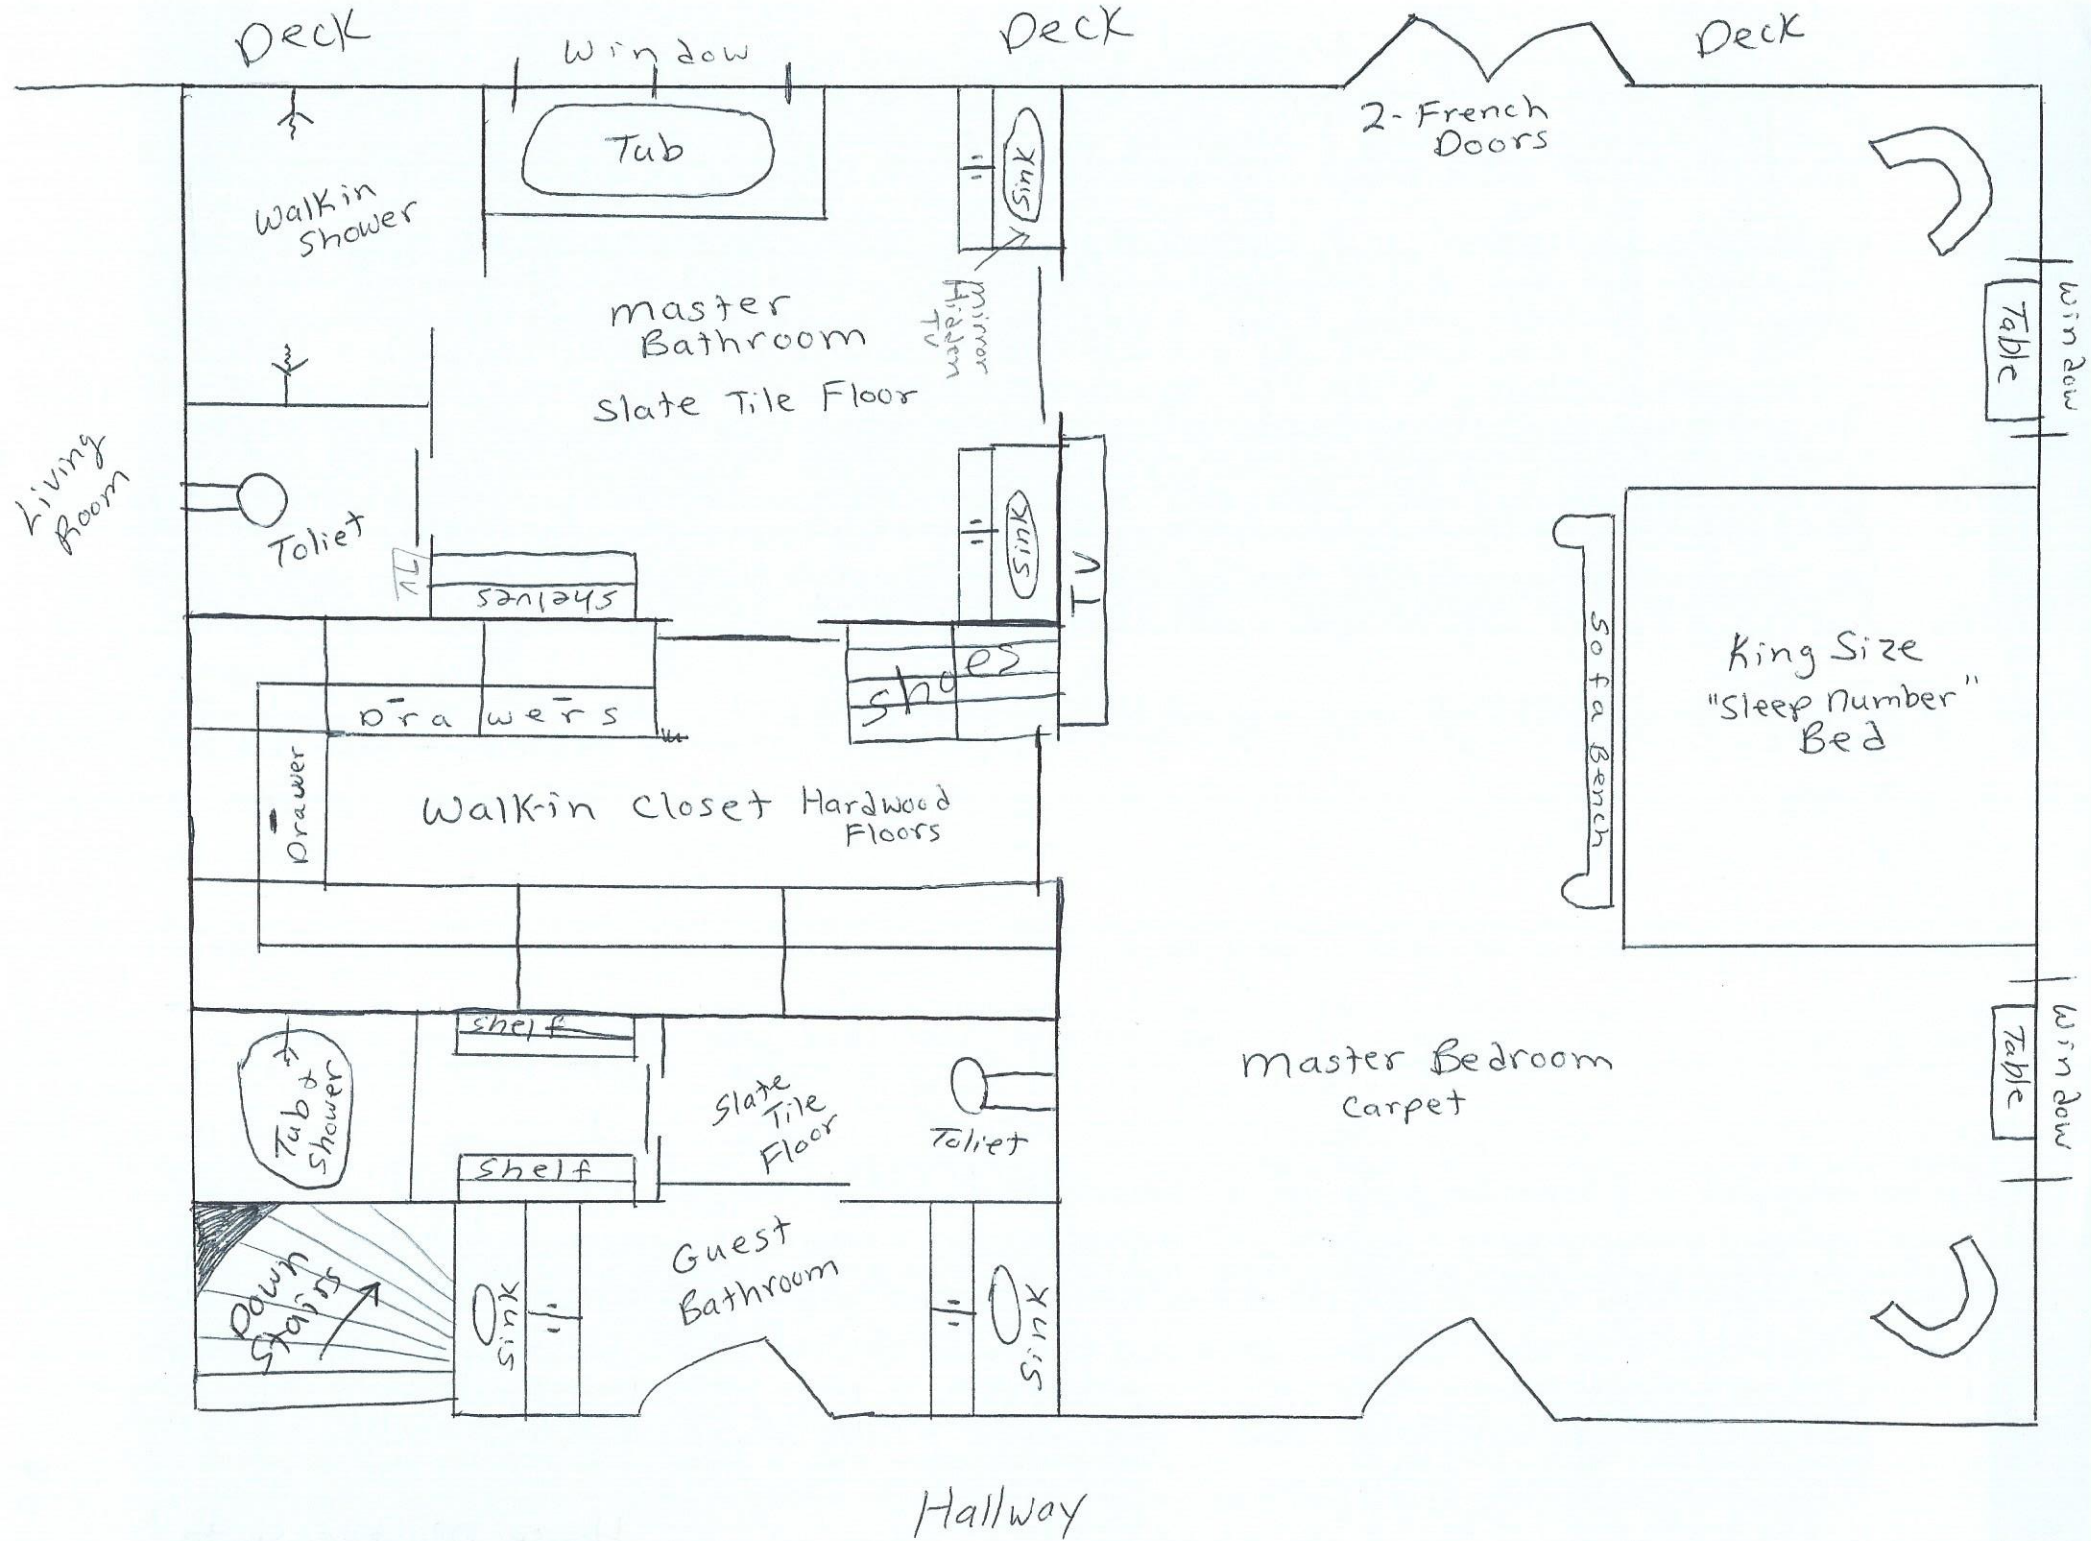 Deck
Window
Deck
Deck
Tub
Sink
2-French
Doors
Walkin
Shower
Master
Bathroom
Slate Tile Floor
Mirror
Hidden
TV
Window
Table
Living
Room
Toliet
TV
Shelves
Sink
TV
Shoes
Sofa Bench
King Size
"Sleep Number"
Bed
Drawers
Drawer
Walk-in Closet Hardwood
Floors
Shelf
Tub +
Shower
Shelf
Slate
Tile
Floor
Toliet
Master Bedroom
Carpet
Table
Window
Down
Stairs
Sink
Guest
Bathroom
Sink
Hallway